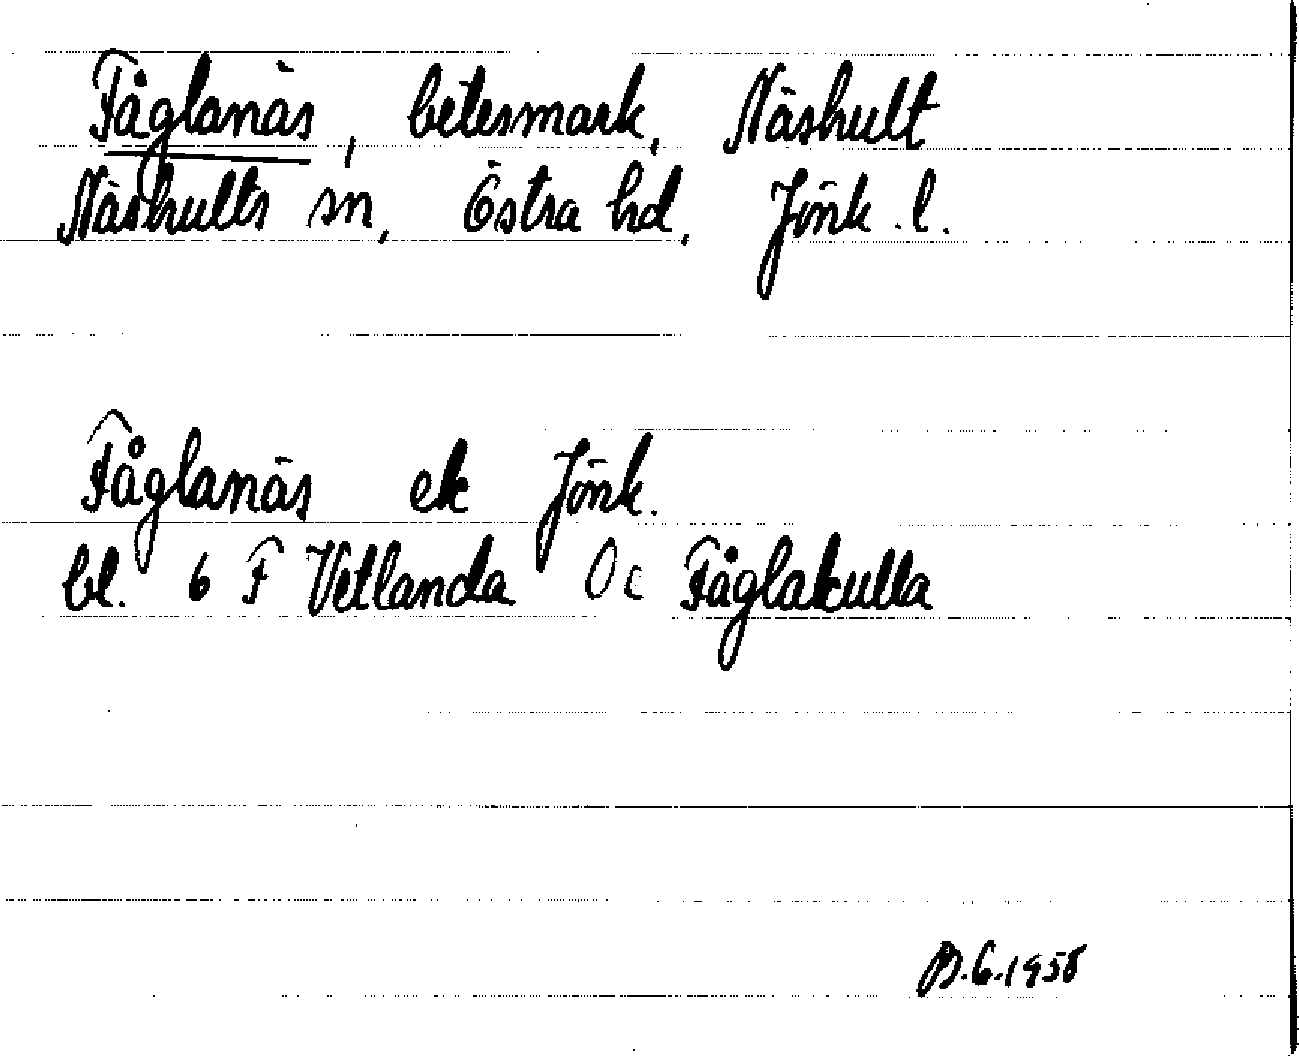 Fåglanäs, betesmark, Näshult
Näshults sn, Östra hd, Jönk. l.
Fåglanäs ek Jönk.
bl. 6 F Vetlanda 0 c Fåglakulla
B.G. 1958